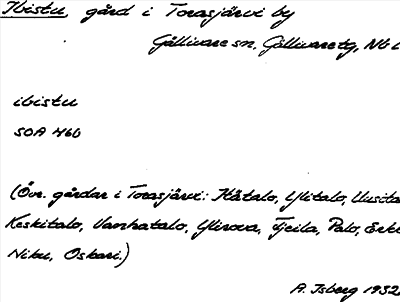 Ibistu, gård i Torasjärvi by
Gällivare sn, Gällivare tg, Nb l
ibistu
SOA 460
(Övr. gårdar i Torasjärvi: Kätalo, Ylitalo, Uusita
Keskitalo, Vanhatalo, Ylirova, Fjeila, Palo, Erke
Niku, Oskari.)
A. Isberg 1932